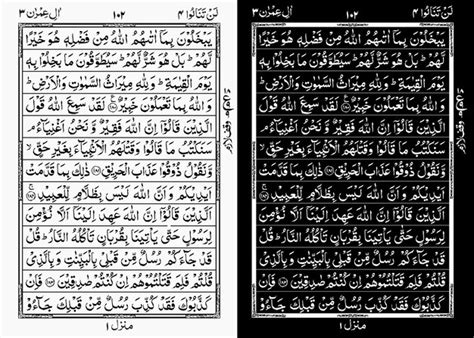 لَنْ تَنَالُوا ٤ ١٠٢ اٰلِ عِمْرٰن ٣
يَبْخَلُوْنَ بِمَاۤ اٰتٰىهُمُ اللّٰهُ مِنْ فَضْلِهٖ هُوَ خَيْرًا
لَّهُمْ ؕ بَلْ هُوَ شَرٌّ لَّهُمْ ؕ سَيُطَوَّقُوْنَ مَا بَخِلُوْا بِهٖ
يَوْمَ الْقِيٰمَةِ ؕ وَلِلّٰهِ مِيْرَاثُ السَّمٰوٰتِ وَالْاَرْضِ ؕ
وَاللّٰهُ بِمَا تَعْمَلُوْنَ خَبِيْرٌ ۝ لَقَدْ سَمِعَ اللّٰهُ قَوْلَ
الَّذِيْنَ قَالُوْۤا اِنَّ اللّٰهَ فَقِيْرٌ وَّنَحْنُ اَغْنِيَآءُ ۘ
سَنَكْتُبُ مَا قَالُوْا وَقَتْلَهُمُ الْاَنْۢبِيَآءَ بِغَيْرِ حَقٍّ ۙ
وَّنَقُوْلُ ذُوْقُوْا عَذَابَ الْحَرِيْقِ ۝ ذٰلِكَ بِمَا قَدَّمَتْ
اَيْدِيْكُمْ وَاَنَّ اللّٰهَ لَيْسَ بِظَلَّامٍ لِّلْعَبِيْدِ ۝
اَلَّذِيْنَ قَالُوْۤا اِنَّ اللّٰهَ عَهِدَ اِلَيْنَاۤ اَلَّا نُؤْمِنَ
لِرَسُوْلٍ حَتّٰى يَاْتِيَنَا بِقُرْبَانٍ تَاْكُلُهُ النَّارُ ؕ قُلْ
قَدْ جَآءَكُمْ رُسُلٌ مِّنْ قَبْلِيْ بِالْبَيِّنٰتِ وَبِالَّذِيْ
قُلْتُمْ فَلِمَ قَتَلْتُمُوْهُمْ اِنْ كُنْتُمْ صٰدِقِيْنَ ۝ فَاِنْ
كَذَّبُوْكَ فَقَدْ كُذِّبَ رُسُلٌ مِّنْ قَبْلِكَ جَآءُوْ
مَنْزِل ١
لَنْ تَنَالُوا ٤ ١٠٢ اٰلِ عِمْرٰن ٣
يَبْخَلُوْنَ بِمَاۤ اٰتٰىهُمُ اللّٰهُ مِنْ فَضْلِهٖ هُوَ خَيْرًا
لَّهُمْ ؕ بَلْ هُوَ شَرٌّ لَّهُمْ ؕ سَيُطَوَّقُوْنَ مَا بَخِلُوْا بِهٖ
يَوْمَ الْقِيٰمَةِ ؕ وَلِلّٰهِ مِيْرَاثُ السَّمٰوٰتِ وَالْاَرْضِ ؕ
وَاللّٰهُ بِمَا تَعْمَلُوْنَ خَبِيْرٌ ۝ لَقَدْ سَمِعَ اللّٰهُ قَوْلَ
الَّذِيْنَ قَالُوْۤا اِنَّ اللّٰهَ فَقِيْرٌ وَّنَحْنُ اَغْنِيَآءُ ۘ
سَنَكْتُبُ مَا قَالُوْا وَقَتْلَهُمُ الْاَنْۢبِيَآءَ بِغَيْرِ حَقٍّ ۙ
وَّنَقُوْلُ ذُوْقُوْا عَذَابَ الْحَرِيْقِ ۝ ذٰلِكَ بِمَا قَدَّمَتْ
اَيْدِيْكُمْ وَاَنَّ اللّٰهَ لَيْسَ بِظَلَّامٍ لِّلْعَبِيْدِ ۝
اَلَّذِيْنَ قَالُوْۤا اِنَّ اللّٰهَ عَهِدَ اِلَيْنَاۤ اَلَّا نُؤْمِنَ
لِرَسُوْلٍ حَتّٰى يَاْتِيَنَا بِقُرْبَانٍ تَاْكُلُهُ النَّارُ ؕ قُلْ
قَدْ جَآءَكُمْ رُسُلٌ مِّنْ قَبْلِيْ بِالْبَيِّنٰتِ وَبِالَّذِيْ
قُلْتُمْ فَلِمَ قَتَلْتُمُوْهُمْ اِنْ كُنْتُمْ صٰدِقِيْنَ ۝ فَاِنْ
كَذَّبُوْكَ فَقَدْ كُذِّبَ رُسُلٌ مِّنْ قَبْلِكَ جَآءُوْ
مَنْزِل ١